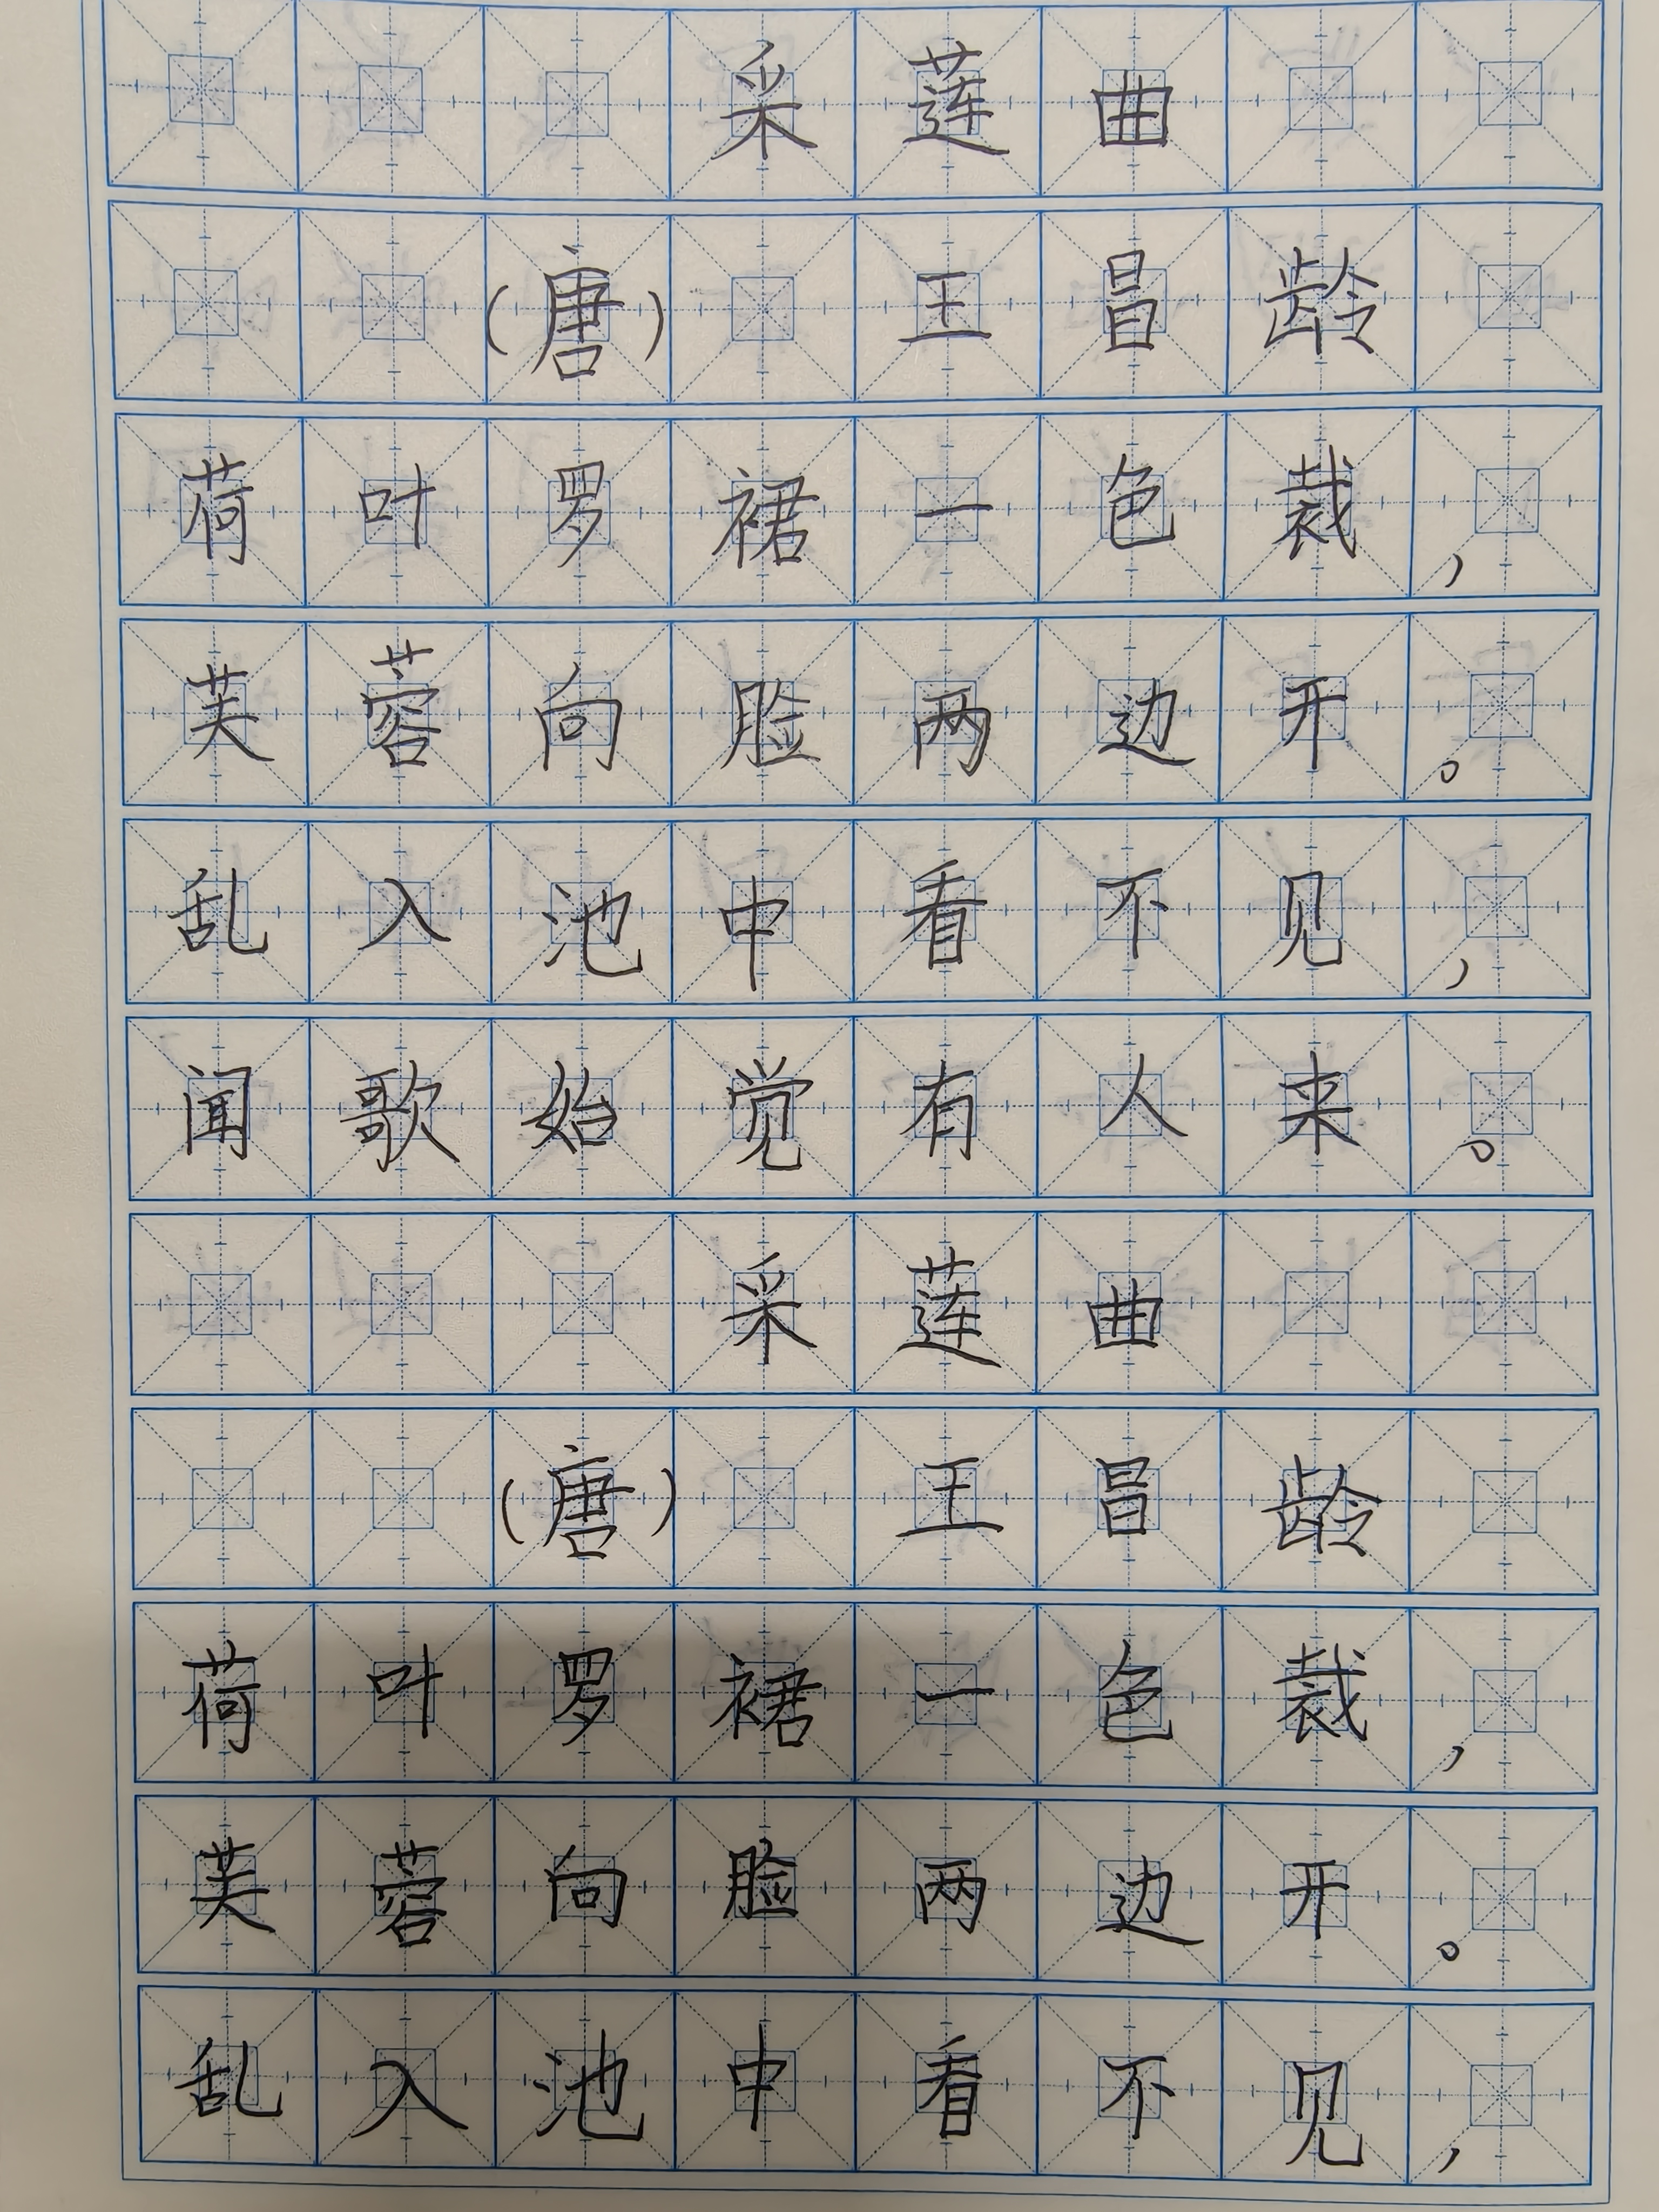 采莲曲
（唐） 王昌龄
荷叶罗裙一色裁，
芙蓉向脸两边开。
乱入池中看不见，
闻歌始觉有人来。
采莲曲
（唐） 王昌龄
荷叶罗裙一色裁，
芙蓉向脸两边开。
乱入池中看不见，